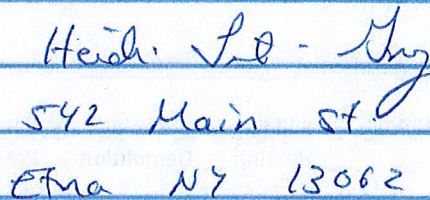 Heidi
542 Main St.
Etna NY 13062